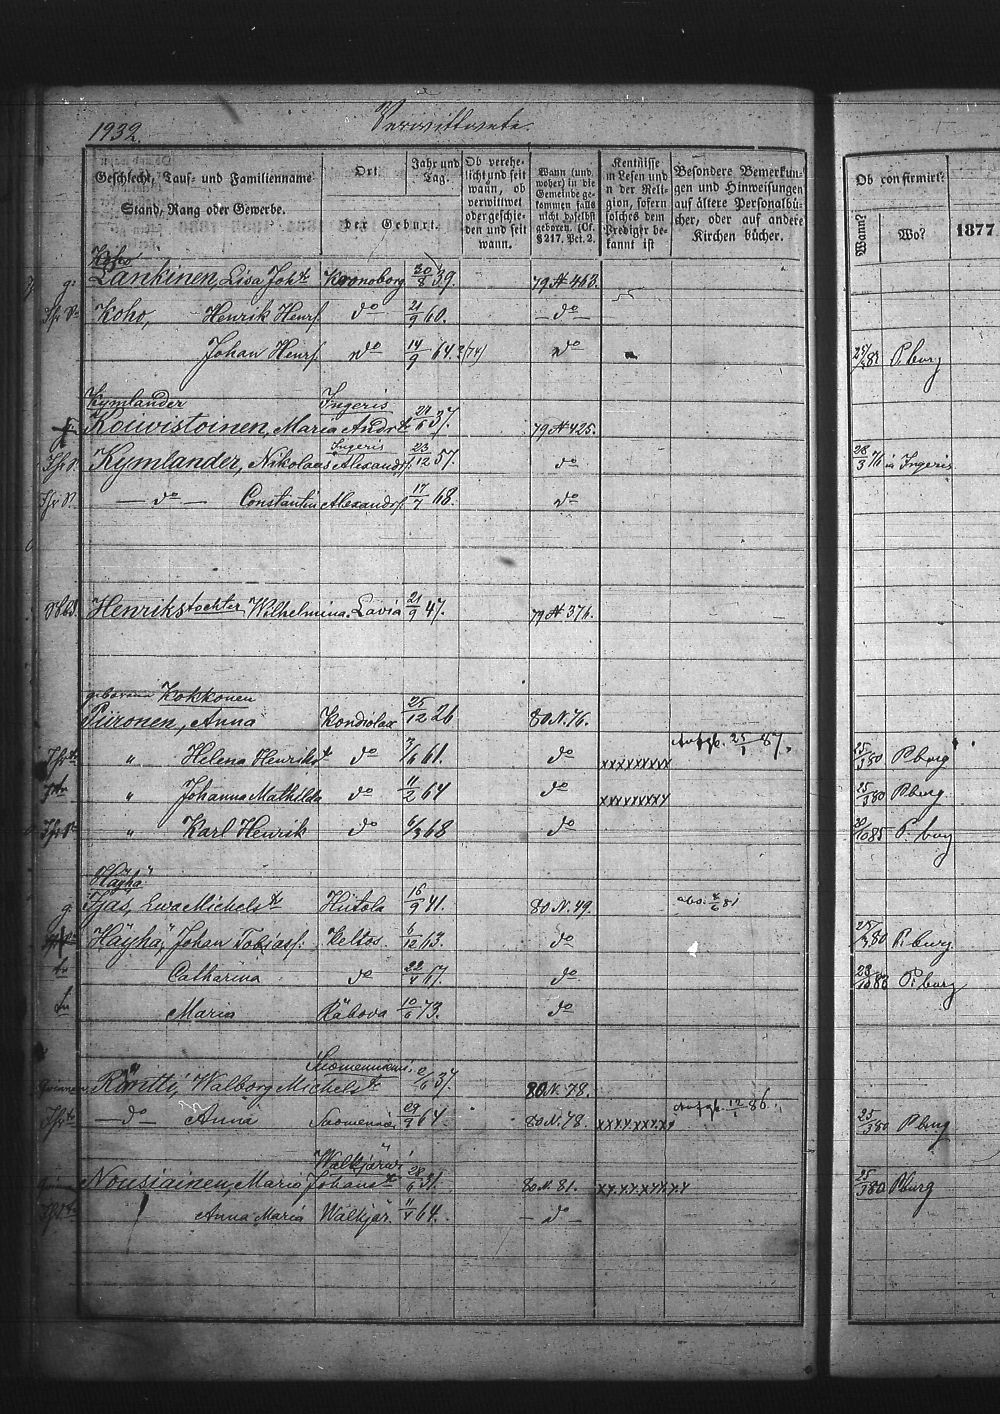 1932. Verwittwete.
Geschlecht, Tauf- und Familienname
Stand, Rang oder Gewerbe.
Ort
der Geburt.
Jahr und Tag.
Ob verehelicht und seit wann, ob verwittwet oder geschieden und seit wann.
Wann (und woher) in die Gemeinde gekommen falls nicht daselbst geboren. (Cf. § 217, Pct. 2.
Kentnisse im Lesen und in der Religion, sofern solches dem Prediger bekannt ist
Besondere Bemerkungen und Hinweisungen auf ältere Personalbücher, oder auf andere Kirchen bücher.
Ob confirmirt?
Wann? Wo? 1877
Koho
Lankinen, Lisa Joh Kronoborg 30/8 39. 79 N 463.
Koho, Henrik Henrs do 21/9 60. — do —
Johan Henrs do 14/9 64. do P. burg
Kymlander Ingeris
Kouvistoinen, Maria Andr 24/6 37. 79 N 425.
Ingeris
Kymlander, Nikolaus Alexandrs 23/12 57. do 28/3 76 in Ingeris
— do — Constantin Alexandrs 17/7 68. do
Henrikstochter, Wilhelmina. Lavia 21/9 47. 79 N 376.
geborene Kokkonen
Piironen, Anna Kondiolax 25/12 26 80 N. 76.
" Helena Henriks do 7/6 61. do xxxxxxxxx Aufgb. 25/1 87. 25/3 80 P. burg
" Johanna Mathilda do 11/2 64 do xxxxxxxx 25/3 80 P. burg
" Karl Henrik do 6/3 68 do 20/10 85 P. burg
Häyhä
Ijäs, Ewa Michels Hiitola 16/9 41. 80 N. 49.
Häyhä, Johan Tobiass: Keltos 6/12 63. do 25/3 80 P. burg
Catharina do 22/4 67. do 23/10 83 P. burg
Maria Räbova 10/6 73. do
Suomenniemi
Räntti, Walborg Michels 2/6 37. 80 N. 78.
— do — Anna Suomenn 29/9 64. 80 N. 78. xxxxxxxxx Aufgb. 12/1 86. 25/3 80 P. burg
Walkjärvi
Nousiainen, Maria Johans 28/6 31. 80 N. 81. xxxxxxxxx 25/3 80 P burg
Anna Maria Walkjär. 11/4 64. — do —